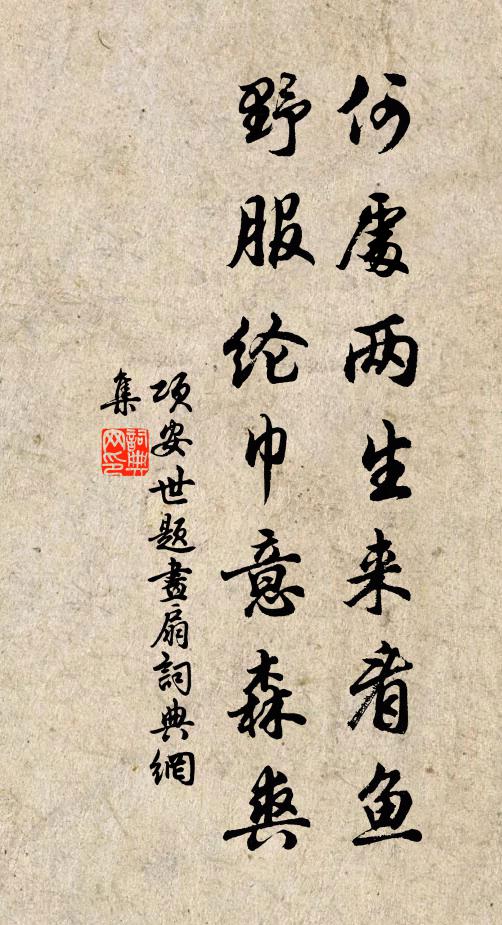 何處两生来看鱼
野服纶巾意森爽
项安世题畫扇詞典網
集
詞典
网印